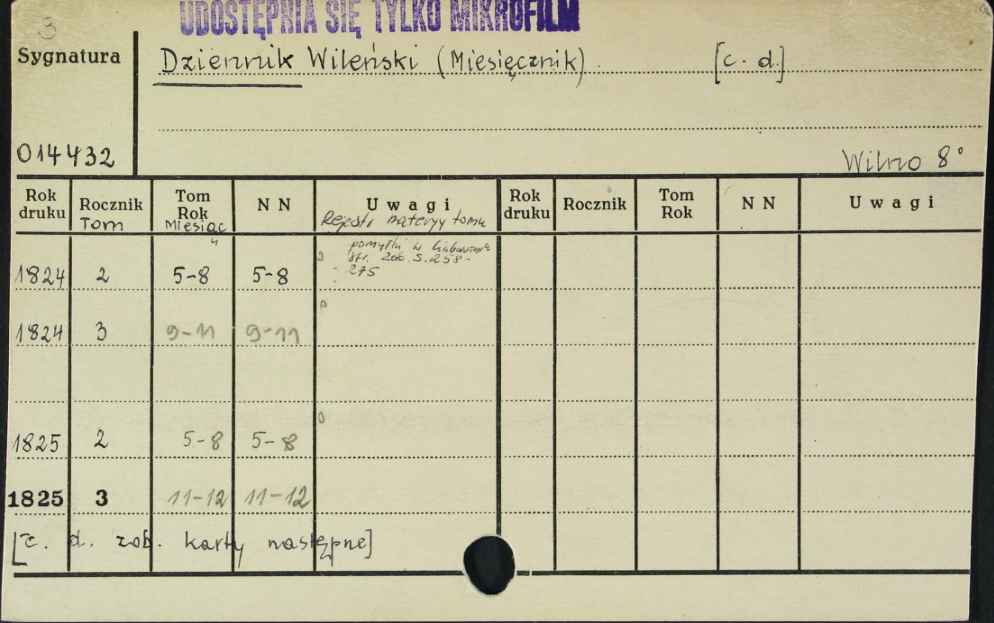 3
UDOSTĘPNIA SIĘ TYLKO MIKROFILM
Sygnatura
Dziennik Wileński (Miesięcznik) [c. d.]
014432
Wilno 8°
Rok druku Rocznik Tom Rok N N Uwagi Rok druku Rocznik Tom Rok N N Uwagi
Tom Miesiąc Rejestr materyy tomu
pomyłki w
str. 200 s. 258-
275
1824 2 5-8 5-8
1824 3 9-11 9-11
1825 2 5-8 5-8
1825 3 11-12 11-12
[c. d. zob. karty następne]